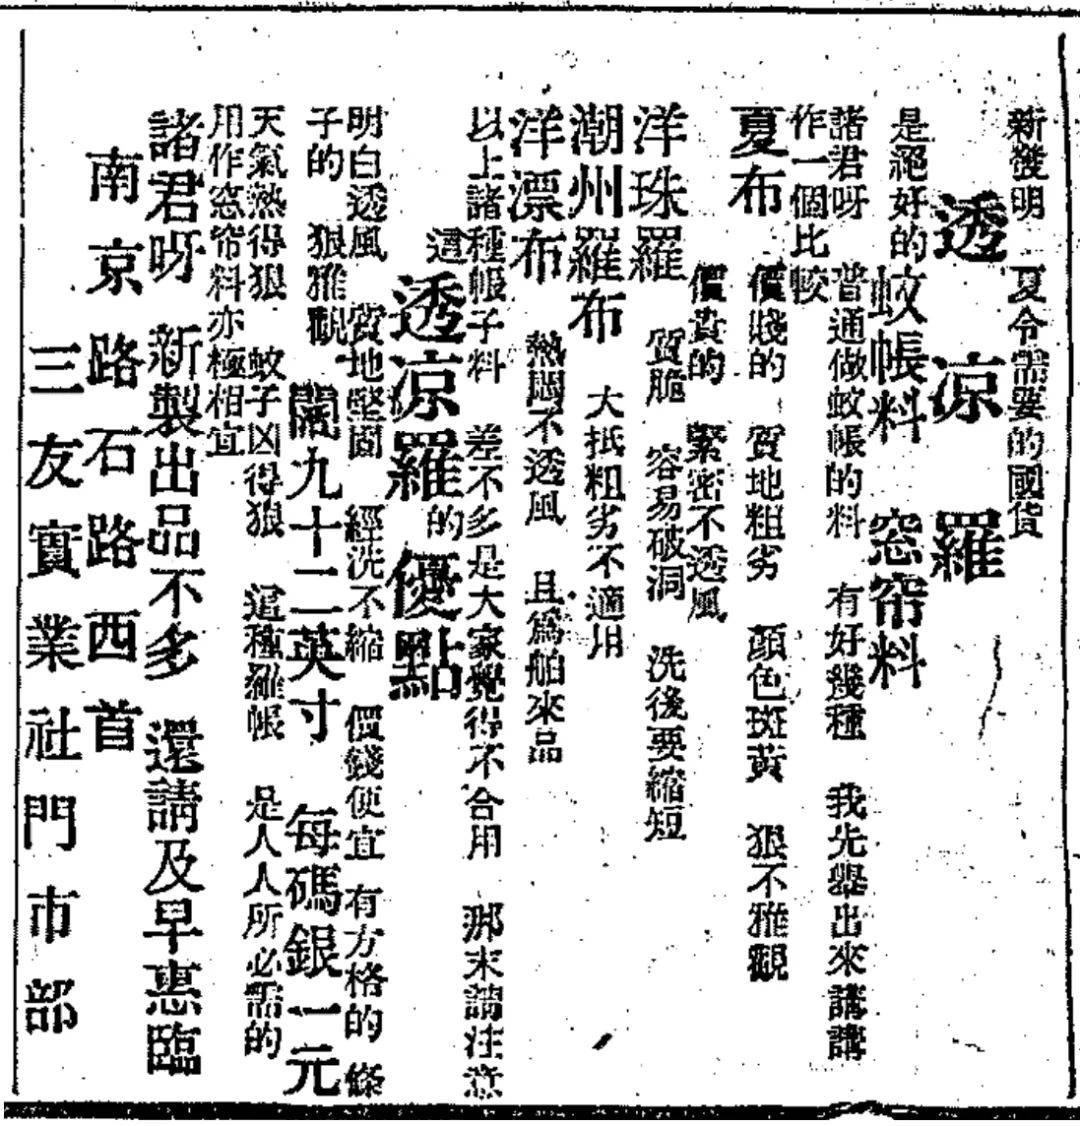 新發明　夏令需要的國貨
透涼羅
是絕好的蚊帳料　窓帘料
諸君呀　普通做蚊帳的料　有好幾種　我先舉出來講講
作一個比較
夏布　價賤的　質地粗劣　顏色斑黃　狠不雅觀
價貴的　緊密不透風
洋珠羅　質脆　容易破洞　洗後要縮短
潮州羅布　大抵粗劣不適用
洋漂布　熱悶不透風　且爲舶來品
以上諸種帳子料　差不多是大家覺得不合用　那末請注意
這透涼羅的優點
明白透風　質地堅固　經洗不縮　價錢便宜　有方格的　條
子的　狠雅觀　闊九十二英寸　每碼銀一元
天氣熱得狠　蚊子凶得狼　這種羅帳　是人人所必需的
用作窓帘料亦極相宜
諸君呀　新製出品不多　還請及早惠臨
南京路石路西首
三友實業社門市部